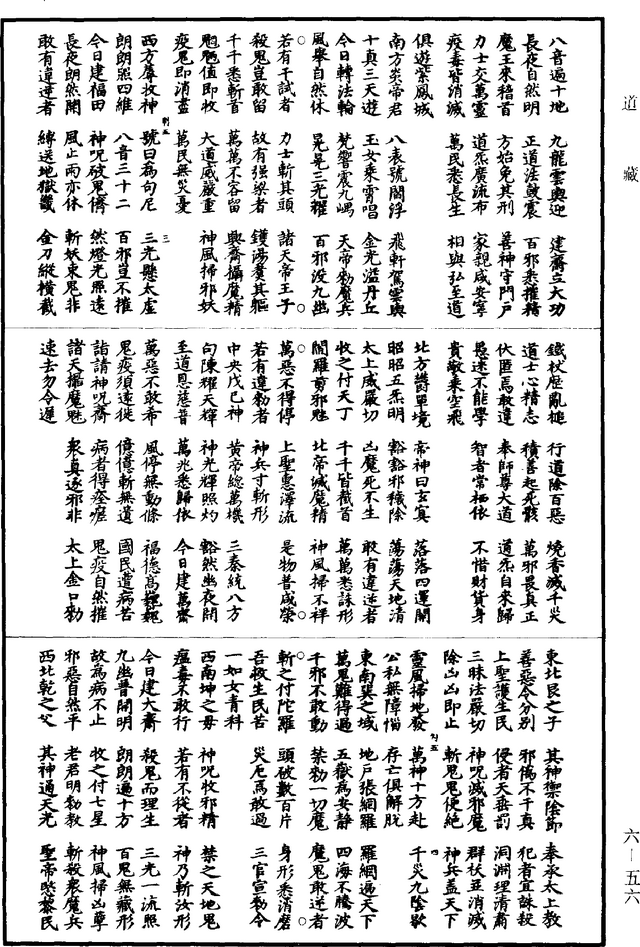 道藏
八音遍十地 九龍雲輿迎 建齋立大功
長夜自然明 正道法鼓震 百邪悉摧精
魔王來稽首 方始免其刑 善神守門戶
力士交萬靈 道炁廣流布 家親咸安寧
疫毒皆消滅 萬民悉長生 相與弘至道
俱遊紫鳳城
南方炎帝君 八表號閻浮 飛軒駕雲輿
十真三天遊 玉女乘霄唱 金光溢丹丘
今日轉法輪 梵響震九嵎 天帝勑魔兵
風舉自然休 晃晃三光耀 百邪沒九幽
若有干試者 力士斬其頭 諸天帝王子
殺鬼豈敢留 故有强梁者 鑊湯煑其軀
千千悉斬首 萬萬不容留 興齋攝魔精
魍魎值即收 大道威嚴重 神風掃邪妖
疫鬼即消盡 萬民無災憂
西方蓐收神 號曰為句尼 三光懸太虛
朗朗照四維 八音三十二 百邪豈不摧
今日建福田 神呪破鬼儔 然燈光照遠
長夜朗然開 風止雨亦休 斬妖東鬼非
敢有違違者 縛送地獄幾 金刀縱橫截
鐵杖歷亂槌 行道除百惡 燒香滅千災
道士心精志 積善起死骸 萬邪畏真正
伏匿焉敢違 奉師尊大道 道炁自來歸
愚迷不能學 智者常栖依 不惜財貨身
貴敬乘空飛
北方欝單境 帝神曰玄寞 落落四運開
昭昭五炁明 豁豁邪穢除 蕩蕩天地清
太上威嚴切 凶魔死不生 敢有違逆者
收之付天丁 千千皆截首 萬萬悉誅形
閻羅剪邪魅 北帝滅魔精 神風掃不祥
萬惡不得停 上聖惠澤流 是物普咸榮
若有違勑者 神兵寸斬形
中央戊己神 黃帝總萬機 三秦統八方
句陳耀天輝 神光輝照灼 豁然幽夜開
至道恩慈普 萬兆悉歸依 今日建萬齋
萬惡不敢希 風停無動條 福德高巍巍
鬼疫須遠徙 億億斬無遺 國民遭病苦
詣請神呪齋 病者得痊癒 鬼疫自然摧
諸天攝魔魅 衆真逐邪非 太上金口勑
速去勿令遲
東北艮之子 其神禦除節 奉承太上教
善惡令分別 邪偽不干真 犯者宜誅殺
上聖護生民 侵者天垂罰 洞淵理清肅
三昧法嚴切 神呪滅邪魔 群妖並消滅
除凶凶即止 斬鬼鬼便絕 神兵蓋天下
靈風掃地發 萬神十方赴 千災九陰歇
公私無障惱 存亡俱解脫
東南巽之域 地戶張網羅 羅網遍天下
萬鬼難得過 五嶽為安靜 四海不騰波
千邪不敢動 禁勑一切魔 魔鬼敢逆者
斬之付陀羅 頭破數百片 身形悉消磨
吾救生民苦 災厄焉敢過 三官宣勑令
一如女青科
西南坤之母 神呪收邪精 禁之天地鬼
瘟毒不敢行 若有不從者 神乃斬汝形
今日建大齋 殺鬼而理生 三光一流照
九幽普開明 朗朗遍十方 百鬼無藏形
故為病不止 收之付七星 神風掃凶孽
邪惡自然平 老君明勑教 斬殺衆魔兵
西北乾之父 其神通天光 聖帝愍黎民
六—五六